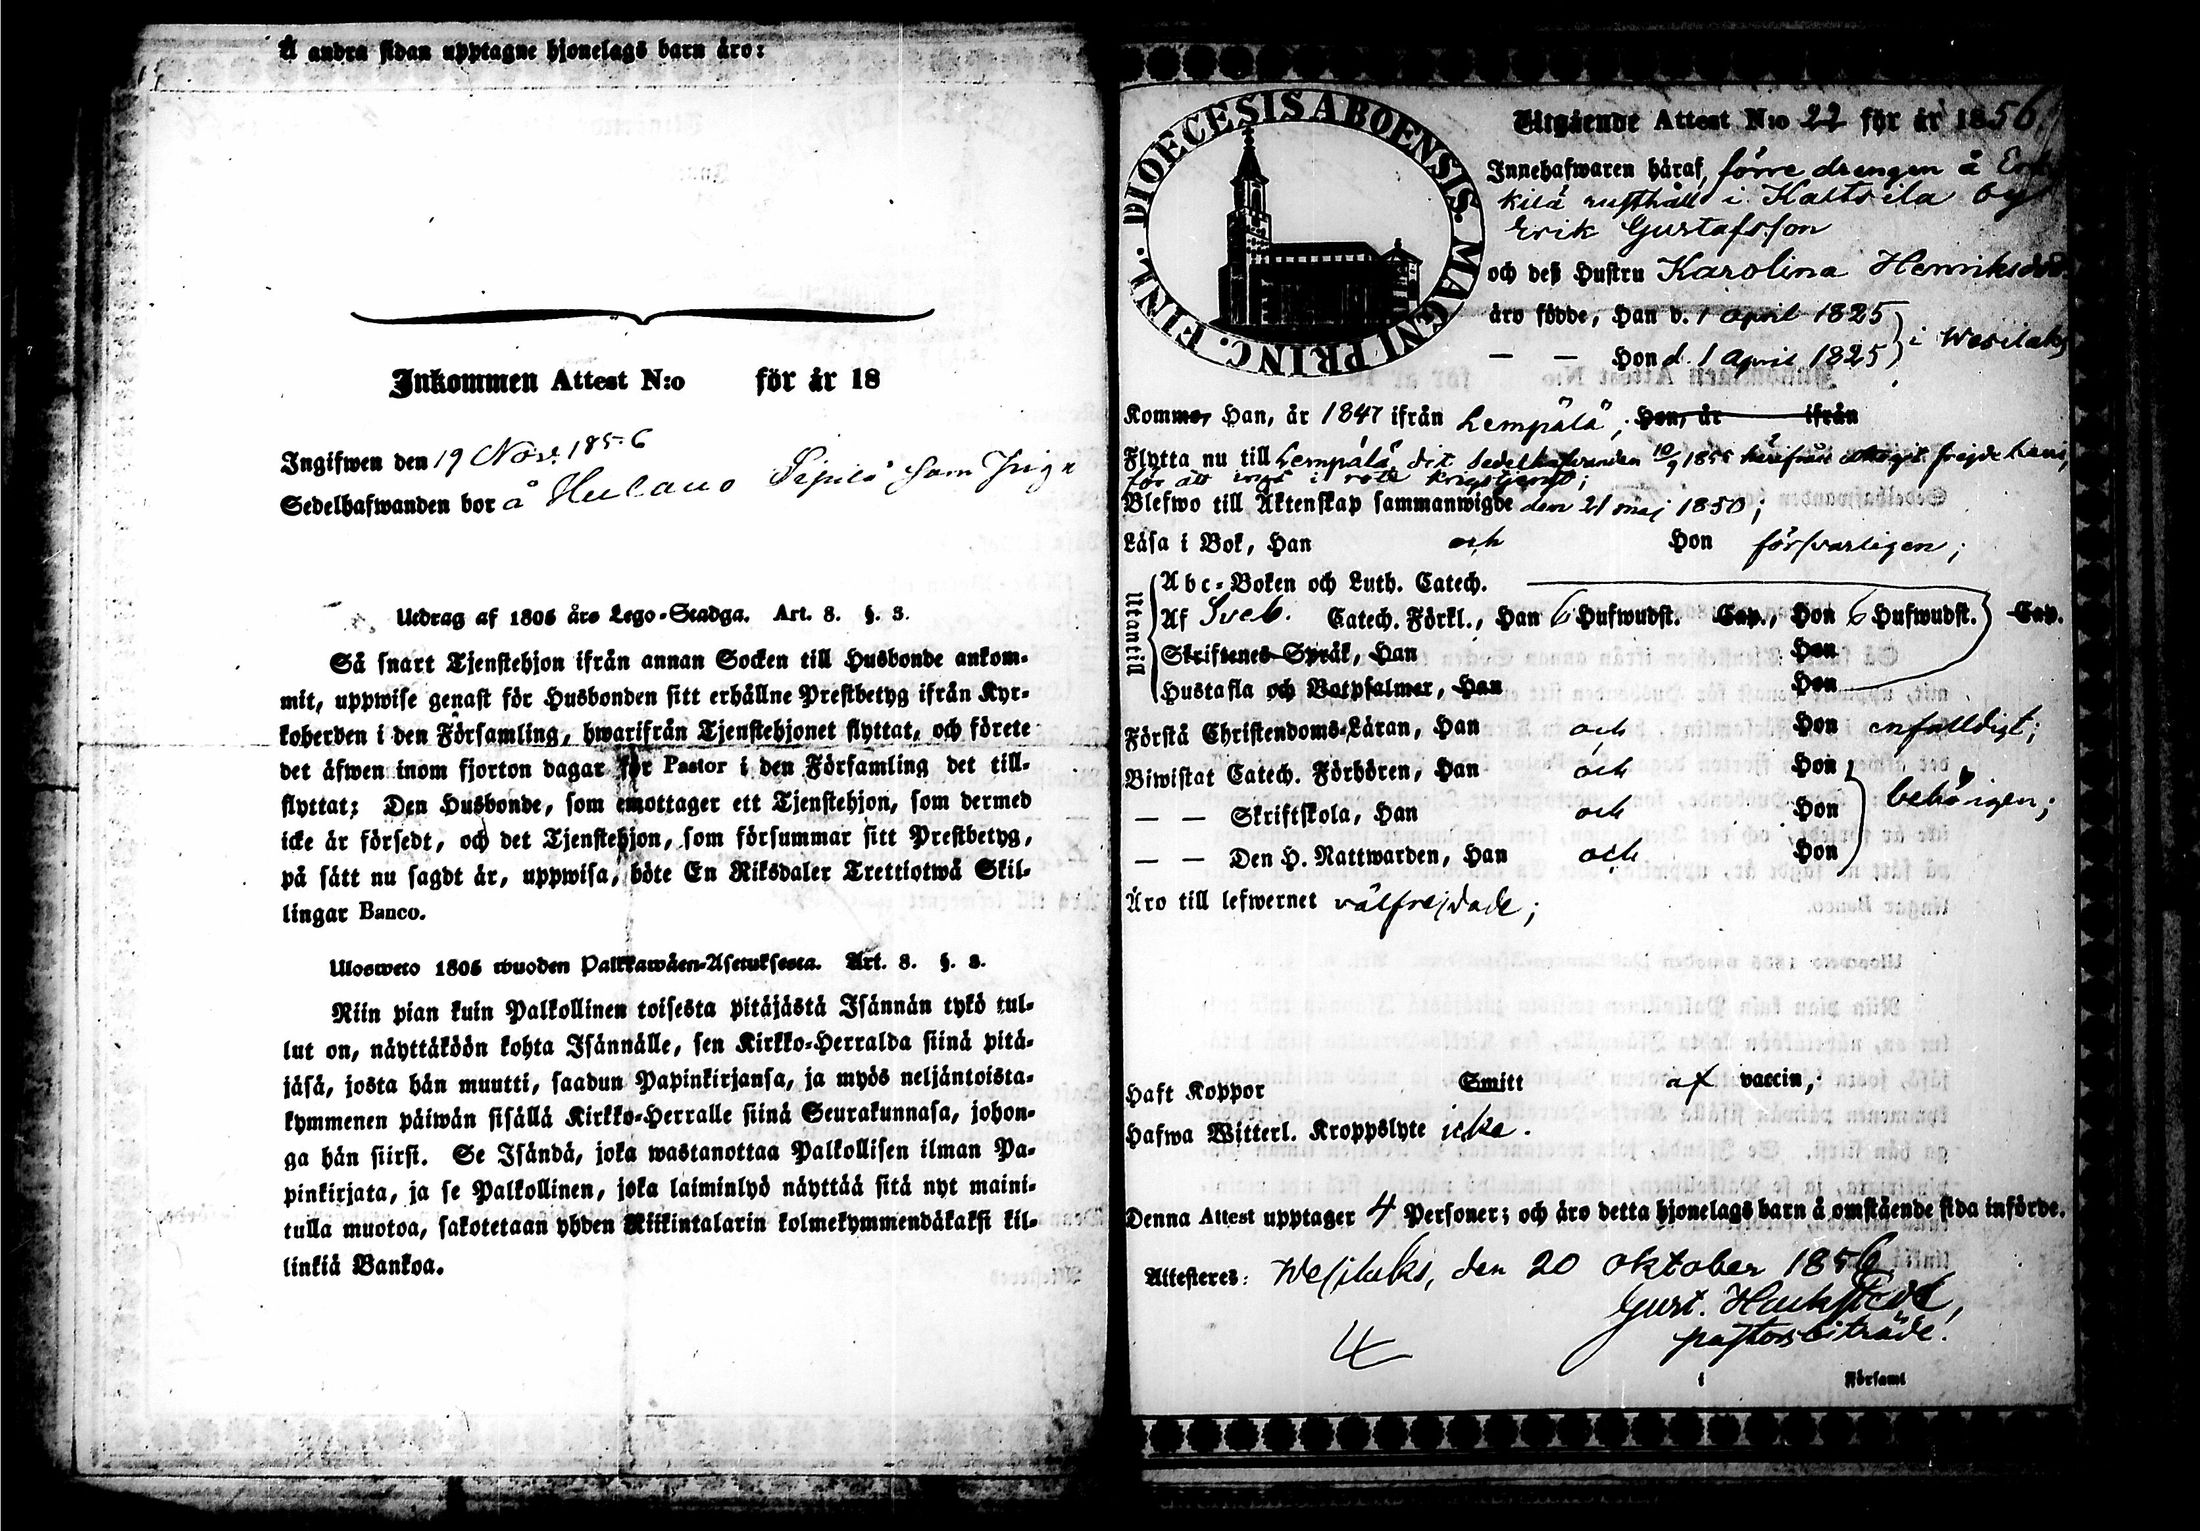 Å andra sidan upptagne hjonelags barn äro:
Inkommen Attest N:o för år 18
Ingifwen den 19 Nov. 1856
Sedelhafwanden bor å Hulaus Sipilä som
Utdrag af 1805 års Lego-Stadga. Art. 8. §. 3.
Så snart Tjenstehjon ifrån annan Socken till Husbonde ankom-
mit, uppwise genast för Husbonden sitt erhållne Prestbetyg ifrån Kyr-
koherden i den Församling, hwarifrån Tjenstehjonet flyttat, och förete
det äfwen inom fjorton dagar för Pastor i den Församling det till-
flyttat; Den Husbonde, som emottager ett Tjenstehjon, som dermed
icke är försedt, och det Tjenstehjon, som försummar sitt Prestbetyg,
på sätt nu sagdt är, uppwisa, böte En Riksdaler Trettiotwå Skil-
lingar Banco.
Ulosweto 1805 wuoden Palkkawäen-Asetuksesta. Art. 8. §. 3.
Niin pian kuin Palkollinen toisesta pitäjästä Isännän tykö tul-
lut on, näyttäköön kohta Isännälle, sen Kirkko-Herralda siinä pitä-
jäsä, josta hän muutti, saadun Papinkirjansa, ja myös neljäntoista-
kymmenen päiwän sisällä Kirkko-Herralle siinä Seurakunnasa, johon-
ga hän siirsi. Se Isändä, joka wastanottaa Palkollisen ilman Pa-
pinkirjata, ja se Palkollinen, joka laiminlyö näyttää sitä nyt maini-
tulla muotoa, sakotetaan yhden Riikintalarin kolmekymmendäkaksi kil-
linkiä Bankoa.
DIOECESIS ABOENSIS. MAGNI PRINC. FINL.
Utgående Attest N:o 22 för år 1856
Innehafwaren häraf, förre drengen å
kilä rusthåll i Kaltsila by
Erik Gustafsson
och deß Hustru Karolina Henriksdr
äro födde, Han d. 1 april 1825
— — Hon d. 1 april 1825 } i Wesilaks
Komme, Han, år 1847 ifrån Lempälä; Hon, år ifrån
Flytta nu till Lempälä, dit sedelhafwanden 10/9 1855 härifrån frejde
för att ingå i rote krigstjenst;
Blefwo till Äktenskap sammanwigde den 21 maj 1850;
Läsa i Bok, Han och Hon försvarligen;
Utantill
Abc-Boken och Luth. Catech.
Af Sveb. Catech. Förkl., Han 6 Hufwudst. Cap., Hon 6 Hufwudst. Cap.
Skriftenes Språk, Han Hon
Hustafla och Botpsalmer, Han Hon
Förstå Christendoms-Läran, Han och Hon enfaldigt;
Biwistat Catech. Förhören, Han och Hon
— — Skriftskola, Han och Hon behörigen;
— — Den H. Nattwarden, Han och Hon
Äro till lefwernet välfrejdade;
Haft Koppor Smitt af vaccin;
Hafwa Witterl. Kroppslyte icke.
Denna Attest upptager 4 Personer; och äro detta hjonelags barn å omstående sida införde.
Attesteres: Wesilaks, den 20 oktober 1856
Gust.
pastorsbiträde.
4
i Församl